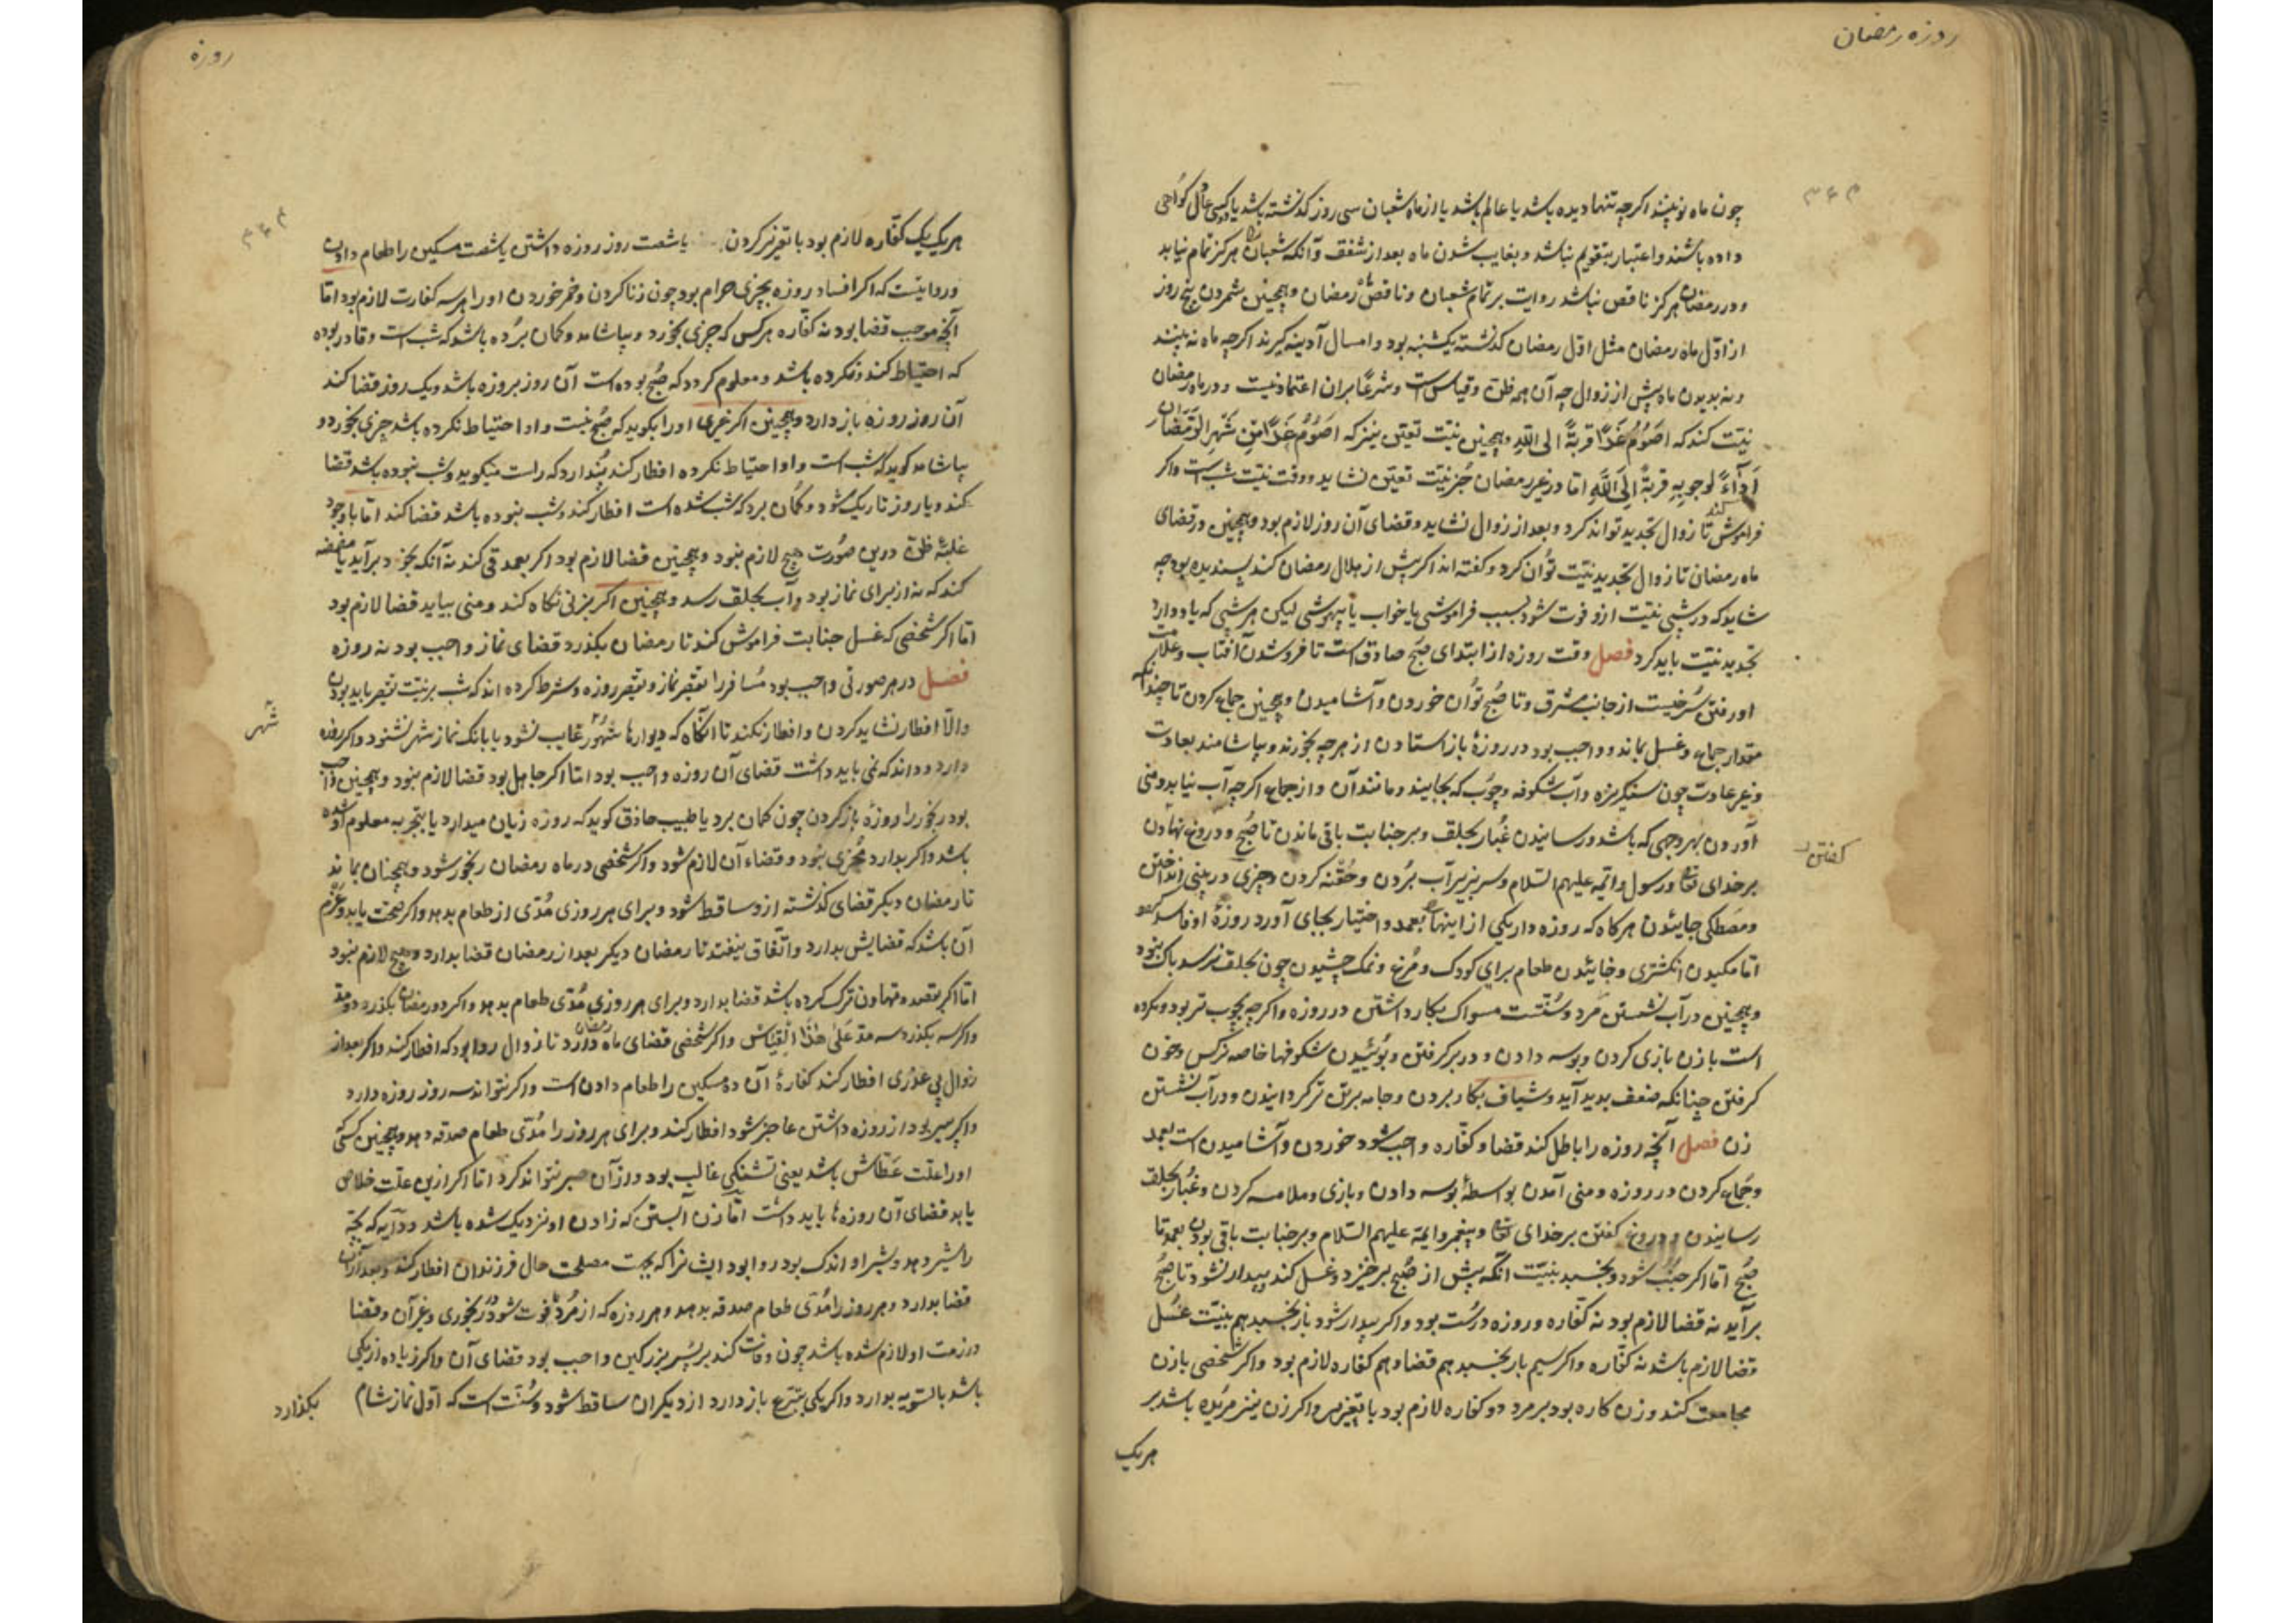 روزه رمضان
چون ماه نو بیند اکرچه تنها دیده باشد یا عالم باشد یا از ماه شعبان سی روز کذشته باشد یا دو کس عدل کواهی
داده باشند و اعتبار بتقویم نباشد و بغایب شدن ماه بعد از شفق و آنکه شعبان هرکز تمام نیاید
و در رمضان هرکز ناقص نباشد روایت بر تمام شعبان و ناقص رمضان و همچنین شمردن پنج روز
از اول ماه رمضان مثل اول رمضان کذشته یکشنبه بود و امسال آدینه کیرند اکرچه ماه نه بینند
و نه بدیدن ماه پیش از زوال چه آن همه ظن و قیاس است و شرعًا بران اعتماد نیست و در ماه رمضان
نیّت کند که اَصُوْمُ غَدًا قربةً الی الله و همچنین نیّت تعیّن نیز که اَصُوْمُ غَدًا مِّن شَهْرِ الرَّمَضَان
اَدَآءً لوجوبِهِ قربةً اِلَی اللّٰهِ امّا در غیر رمضان جز نیّت تعیّن نشاید و وقت نیّت شب است و اکر
فراموش کند تا زوال تجدید تواند کرد و بعد از زوال نشاید و قضای آن روز لازم بود و همچنین در قضای
ماه رمضان تا زوال تجدید نیّت توان کرد و کفته اند اکر پیش از هلال رمضان کند پسندیده بود چه
شاید که در شبی نیّت ازو فوت شود بسبب فراموشی یا خواب یا بیهوشی لیکن هر شبی که یاد دارد
تجدید نیّت باید کرد فصل وقت روزه از ابتدای صبح صادق است تا فروشدن آفتاب و علامت
او رفتن سُرخیست از جانب مشرق و تا صُبح توان خوردن و آشامیدن و همچنین جماع کردن تا چندانکه
مقدار جماع و غسل بماند و واجب بود در روزه باز استادن از هرچه بخورند و بیاشامند بعادت
و غیر عادت چون سنکریزه و آب شکوفه و چوب که بجایند و مانند آن و از جماع اکرچه آب نیاید و منی
آوردن بهر وجهی که باشد و رسانیدن غُبار بحلق و بر جنابت باقی ماندن تا صُبح و دروغ نهادن
کفتن
بر خدای تعالی و رسول و ائمه علیهم السّلام و سر بزیر آب بُردن و حُقنه کردن و چیزی در بینی انداختن
و مصطکی جائیدن هرکاه که روزه دار یکی از اینها بعمد و اختیار بجای آورد روزهٔ او فاسد
امّا مکیدن انکشتری و خائیدن طعام برای کودک و مرغ و نمک چشیدن چون بحلق نرسد باک نبود
و همچنین در آب نشستن مَرد و سُنّتست مسواک بکار داشتن در روزه و اکرچه بچوب تر بود و مکروه
است با زن بازی کردن و بوسه دادن و در بر کرفتن و بوئیدن شکوفها خاصه نرکس و خون
کرفتن چنانکه ضعف بدید آید و شیاف بکار بردن و جامه بر تن تر کردانیدن و در آب نشستن
زن فصل آنچه روزه را باطل کند قضا و کفّاره واجب شود خوردن و آشامیدن است بعمد
و جماع کردن در روزه و منی آمدن بواسطهٔ بوسه دادن و بازی و ملامسه کردن و غُبار بحلق
رسانیدن و دروغ کفتن بر خدای تعالی و پیغمبر و ایمه علیهم السّلام و بر جنابت باقی بودن بعمد تا
صُبح امّا اکر جنُب شود و بخسبد بنیّت آنکه پیش از صُبح برخیزد و غسل کند و بیدار نشود تا صُبح
برآید نه قضا لازم بود نه کفّاره و روزه درست بود و اکر بیدار شود باز بخسبد هم بنیّت غسُل
قضا لازم باشد نه کفّاره و اکر سیم بار بخسبد هم قضا و هم کفاره لازم بود و اکر شخصی با زن
مجامعت کند و زن کاره بود بر مرد دو کفاره لازم بود با تعزیر و اکر زن نیز مریده باشد بر
هریک
روزه
هریک یک کفّاره لازم بود با تعزیر کردن یا شصت روز روزه داشتن یا شصت مسکین را طعام دادن
و روایتست که اکر افساد روزه بچیزی حرام بود چون زنا کردن و خمر خوردن او را هر سه کفارت لازم بود امّا
آنچه موجب قضا بود نه کفّاره هرکس که چیزی بخورد و بیاشامد و کمان بُرده باشد که شب است و قادر بوده
که احتیاط کند و نکرده باشد و معلوم کردد که صُبح بوده است آن روز بروزه باشد و یک روز قضا کند
آن روز روزه باز دارد و همچنین اکر غیری او را بکوید که صُبح نیست و او احتیاط نکرده باشد چیزی بخورد و
بیاشامد کوید که شب است و او احتیاط نکرده افطار کند پندارد که راست میکوید و شب نبوده باشد قضا
کند و یا روز تاریک شود و کمان برد که شب شده است افطار کند و شب نبوده باشد قضا کند امّا با وجود
غلبهٔ ظن درین صُورت هیچ لازم نبود و همچنین قضا لازم بود اکر بعمد قی کند نه آنکه بخود برآید یا مضمضه
کند که نه از برای نماز بود و آب بحلق رسد و همچنین اکر بزنی نکاه کند و منی بیاید قضا لازم بود
امّا اکر شخصی که غسل جنابت فراموش کند تا رمضان بکذرد قضای نماز واجب بود نه روزه
فصل در هر صورتی واجب بود مُسافر را تقصیر نماز و تقصیر روزه و شرط کرده اند که شب بر نیّت تقصیر باید بودن
و الّا افطار نشاید کردن و افطار نکند تا آنکاه که دیوارها شهر غایب نشود یا بانک نماز شهر نشنود و اکر روزه
شهر
دارد و داند که نمی باید داشت قضای آن روزه واجب بود امّا اکر جاهل بود قضا لازم نبود و همچنین واجب
بود رنجور را روزه باز کردن چون کمان برد یا طبیب حاذق کوید که روزه زیان میدارد یا بتجربه معلوم شده
باشد و اکر بدارد مُجزی نبود و قضاء آن لازم شود و اکر شخصی در ماه رمضان رنجور شود و همچنان بماند
تا رمضان دیکر قضای کذشته ازو ساقط شود و برای هر روزی مُدّی از طعام بدهد و اکر صحّت یابد و عَزم
آن باشد که قضایش بدارد و اتّفاق نیفتد تا رمضان دیکر بعد از رمضان قضا بدارد و هیچ لازم نبود
امّا اکر بقصد و تهاون ترک کرده باشد قضا بدارد و برای هر روزی مُدّی طعام بدهد و اکر دو رمضان بکذرد دو مد
و اکر سه بکذرد سه مد عَلیٰ هٰذَا القیاس و اکر شخصی قضای ماه رمضان دارد تا زوال روا بود که افطار کند و اکر بعد از
زوال بی عذری افطار کند کفارهٔ آن ده مسکین را طعام دادن است و اکر نتواند سه روز روزه دارد
و اکر پیر بود از روزه داشتن عاجز شود افطار کند و برای هر روز را مُدّی طعام صدقه دهد و همچنین کسی
او را علّت عطاش باشد یعنی تشنکی غالب بود و از آن صبر نتواند کرد امّا اکر ازین علّت خلاص
یابد قضای آن روزها باید داشت امّا زن آبستن که زادن او نزدیک شده باشد و دایه که بچّه
را شیر دهد و شیر او اندک بود روا بود ایشانرا که بجهت مصلحت حال فرزندان افطار کند و بعد از آن
قضا بدارد و هر روز را مُدّی طعام صدقه بدهد و هر روزه که از مَرد فوت شود در رنجوری و غیر آن و قضا
در ذمت او لازم شده باشد چون وفات کند بر پسر بزرکین واجب بود قضای آن و اکر زیاده از یکی
باشد بالسّویه بدارد و اکر یکی بتبرّع باز دارد از دیکران ساقط شود و سُنّت است که اوّل نماز شام
بکذارد